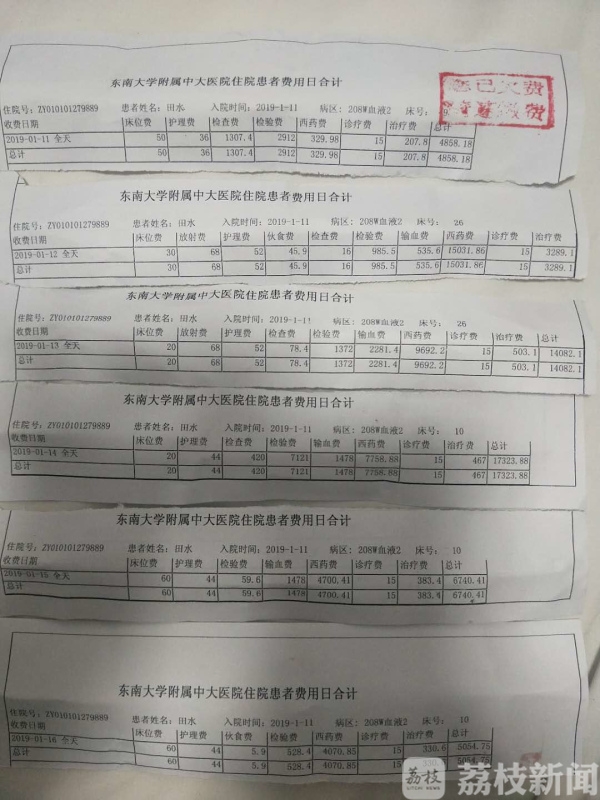 东南大学附属中大医院住院患者费用日合计
您已欠费
住院号: ZY010101279889 患者姓名: 田水 入院时间: 2019-1-11 病区: 208W血液2 床号:
收费日期 床位费 护理费 检查费 检验费 西药费 诊疗费 治疗费 总计
2019-01-11 全天 50 36 1307.4 2912 329.98 15 207.8 4858.18
总计 50 36 1307.4 2912 329.98 15 207.8 4858.18
东南大学附属中大医院住院患者费用日合计
住院号: ZY010101279889 患者姓名: 田水 入院时间: 2019-1-11 病区: 208W血液2 床号: 26
收费日期 床位费 放射费 护理费 伙食费 检查费 检验费 输血费 西药费 诊疗费 治疗费
2019-01-12 全天 30 68 52 45.9 16 985.5 535.6 15031.86 15 3289.1
总计 30 68 52 45.9 16 985.5 535.6 15031.86 15 3289.1
东南大学附属中大医院住院患者费用日合计
住院号: ZY010101279889 患者姓名: 田水 入院时间: 2019-1-11 病区: 208W血液2 床号: 26
收费日期 床位费 放射费 护理费 检查费 检验费 输血费 西药费 诊疗费 治疗费 总计
2019-01-13 全天 20 68 52 78.4 1372 2281.4 9692.2 15 503.1 14082.1
总计 20 68 52 78.4 1372 2281.4 9692.2 15 503.1 14082.1
东南大学附属中大医院住院患者费用日合计
住院号: ZY010101279889 患者姓名: 田水 入院时间: 2019-1-11 病区: 208W血液2 床号: 10
收费日期 床位费 护理费 检查费 检验费 输血费 西药费 诊疗费 治疗费 总计
2019-01-14 全天 20 44 420 7121 1478 7758.88 15 467 17323.88
总计 20 44 420 7121 1478 7758.88 15 467 17323.88
东南大学附属中大医院住院患者费用日合计
住院号: ZY010101279889 患者姓名: 田水 入院时间: 2019-1-11 病区: 208W血液2 床号: 10
收费日期 床位费 护理费 检验费 输血费 西药费 诊疗费 治疗费 总计
2019-01-15 全天 60 44 59.6 1478 4700.41 15 383.4 6740.41
总计 60 44 59.6 1478 4700.41 15 383.4 6740.41
东南大学附属中大医院住院患者费用日合计
住院号: ZY010101279889 患者姓名: 田水 入院时间: 2019-1-11 病区: 208W血液2 床号: 10
收费日期 床位费 护理费 伙食费 检验费 西药费 诊疗费 治疗费 总计
2019-01-16 全天 60 44 5.9 528.4 4070.85 15 330.6 5054.75
总计 60 44 5.9 528.4 4070.85 15 330.6 5054.75
荔枝 荔枝新闻